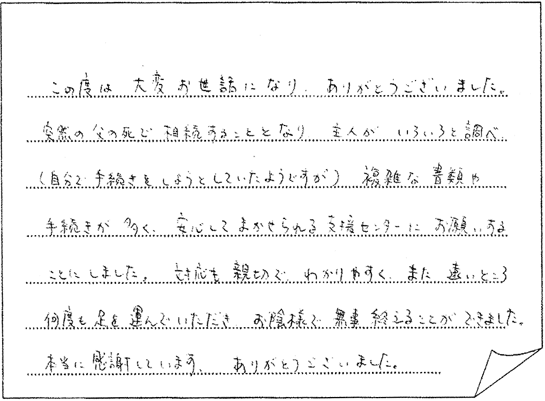 この度は 大変 お世話になり、ありがとうございました。
突然の父の死で 相続することとなり 主人が いろいろと調べ
(自分で 手続きをしようとしていたようですが) 複雑な 書類や
手続きが 多く、安心してまかせられる 支援センターに お願いする
ことにしました。 対応も 親切で、わかりやすく、また 遠いところ
何度も 足を 運んでいただき お陰様で 無事 終えることができました。
本当に 感謝しています、 ありがとうございました。